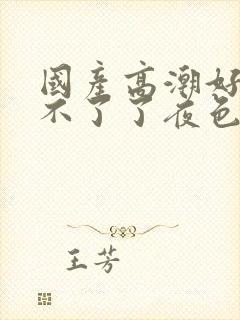 國産高潮好
不了了夜色
王芳